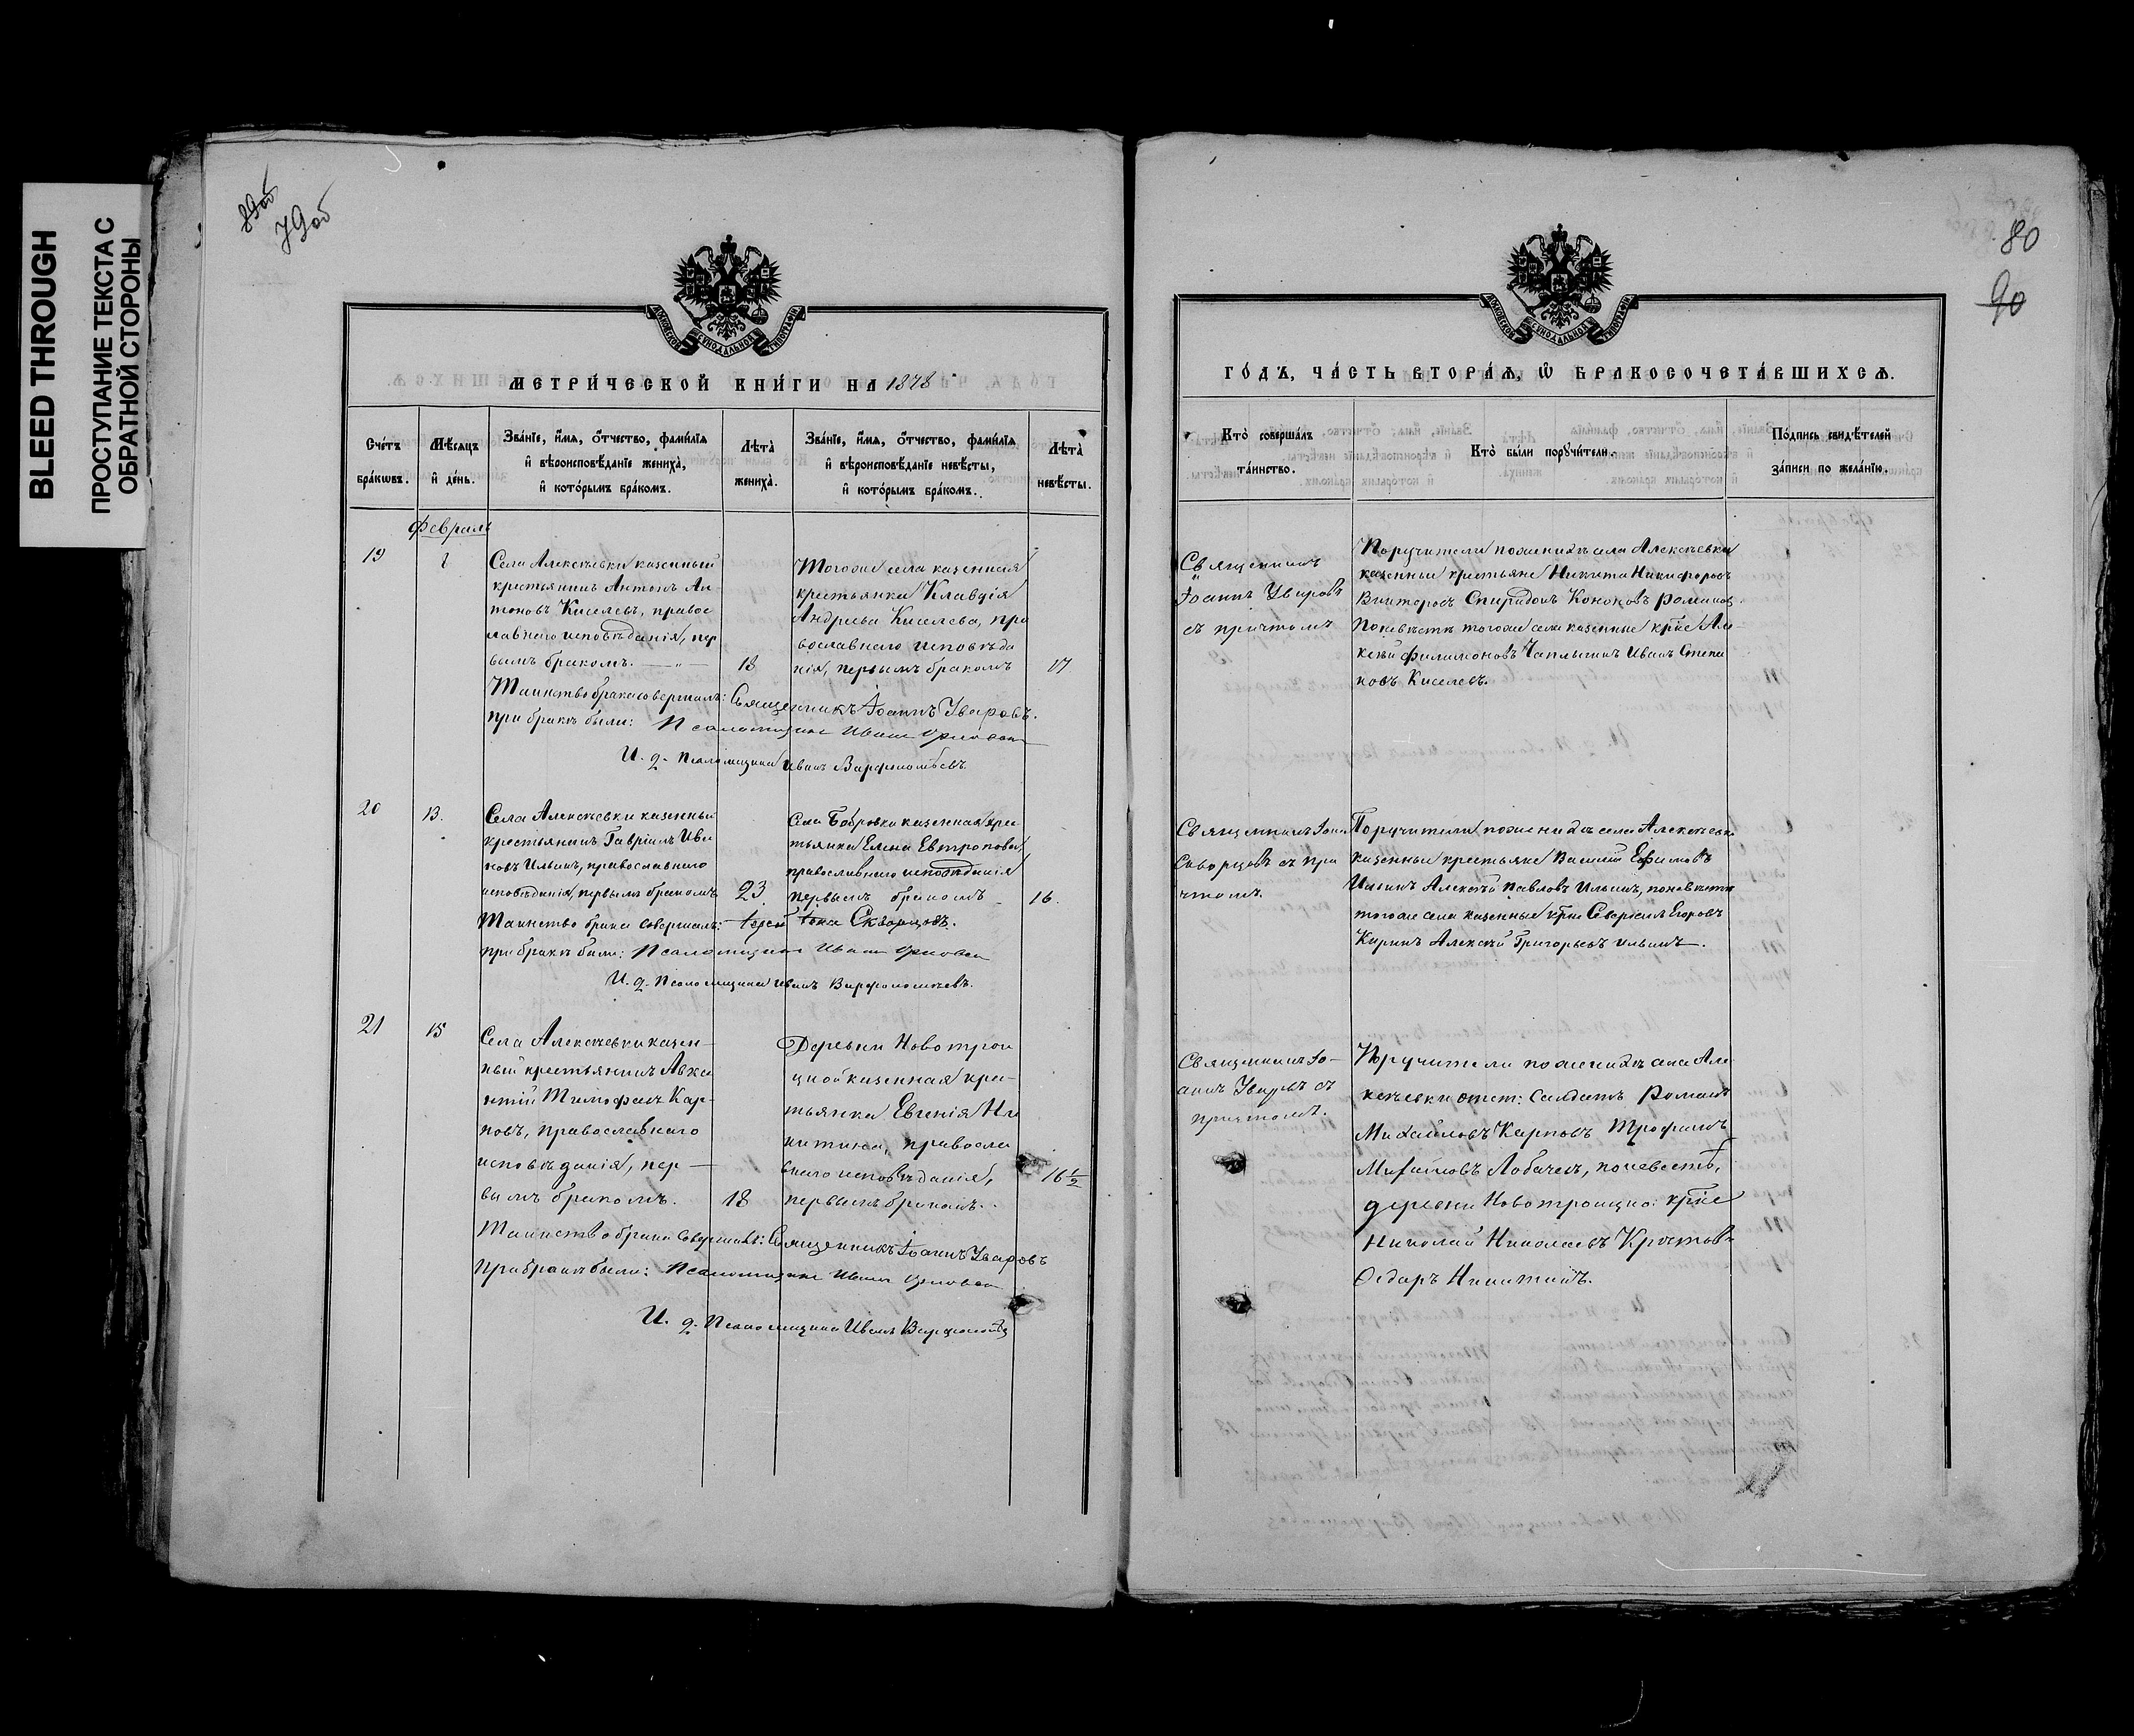 BLEED THROUGH
ПРОСТУПАНИЕ ТЕКСТА С
ОБРАТНОЙ СТОРОНЫ
89об
79об
МОСКОВСКОЙ СѴНОДАЛЬНОЙ ТИПОГРАФІИ
МЕТРИ́ЧЕСКОЙ КНИ́ГИ НА 1878
Сче́тъ бра́кѡвъ.
Мѣ́сяцъ и҆ де́нь.
Зва́нїе, и҆́мѧ, ѻ҆́тчество, фами́лїѧ
и҆ вѣроисповѣ́данїе жениха̀,
и҆ кото́рымъ бра́комъ.
Лѣта̀ жениха̀.
Зва́нїе, и҆́мѧ, ѻ҆́тчество, фами́лїѧ
и҆ вѣроисповѣ́данїе невѣ́сты,
и҆ кото́рымъ бра́комъ.
Лѣта̀ невѣ́сты.
Февраль
19
Села Алексѣевки казенный
крестьянинъ Антонъ Ан-
тоновъ Киселевъ, правос
лавнаго исповѣданія, пер
вымъ бракомъ. — „ —
18
Тогоже села казенная
крестьянка Клавдія
Андреева Киселева, пра
вославнаго исповѣда
нія, первымъ бракомъ
17
Таинство брака совершалъ: Священникъ Іоаннъ Уваровъ.
при бракѣ были: Псаломщикъ Иванъ
И. д. Псаломщика Иванъ Варфоломѣевъ
20
13.
Села Алексѣевки казенный
крестьянинъ Гавріилъ Ива
новъ Ильинъ, православнаго
исповѣданія, первымъ бракомъ
23.
Села Бобровки казенная крес
тьянка Елена Евтропова
православнаго исповѣданія
первымъ бракомъ
16.
Таинство брака совершалъ: Іерей Іона Скворцовъ.
при бракѣ были: Псаломщикъ Иванъ
И. д. Псаломщика Иванъ Варфоломѣевъ.
21
15
Села Алексѣевки казен-
ный крестьянинъ Авксе
нтій Тимофеевъ Кар-
повъ, православнаго
исповѣданія, пер —
вымъ бракомъ.
18
Деревни Новотрои
цкой казенная крес-
тьянка Евгенія Ни
китина, правосла
внаго исповѣданія,
первымъ бракомъ.
16 ½
Таинство брака совершалъ: Священникъ Іоаннъ Уваровъ
При бракѣ были: Псаломщикъ Иванъ
И. д. Псаломщика Иванъ Варфоломѣевъ
80
90
МОСКОВСКОЙ СѴНОДАЛЬНОЙ ТИПОГРАФІИ
ГО́ДЪ, ЧА́СТЬ ВТОРА́Ѧ, Ѽ БРАКОСОЧЕТА́ВШИХСѦ.
Кто̀ соверша́лъ та́инство.
Кто̀ бы́ли порꙋчи́тели.
По́дпись свидѣ́телей за́писи по жела́нїю.
Священникъ
Іоаннъ Уваровъ
съ причтомъ
Поручители по женихѣ села Алексѣевки
казенные крестьяне Никита Никифоровъ
Спиридонъ Романов.
По невѣстѣ тогоже села казенные кр͠не Але-
ксѣй Филимоновъ Чаплыгинъ Иванъ Степа
новъ Киселевъ.
Священникъ Іона
Скворцовъ съ при
чтомъ.
Поручители по женихѣ села Алексѣевки
казенные крестьяне Василій Ефимовъ
Алексѣй Павловъ Ильинъ, по невѣстѣ
тогоже села казенные кр͠не Егоровъ
Алексѣй Григорьевъ Ильинъ.
Священникъ Іо-
аннъ Уваровъ съ
причтомъ.
Поручители по женихѣ села Але-
ксѣевки отст: Солдатъ Романъ
Михайловъ Карповъ Трофимъ
Михайловъ Лобачевъ, по невестѣ,
деревни Новотроицкой: кр͠не
Николай Николаевъ
Ѳедоръ Никитинъ.